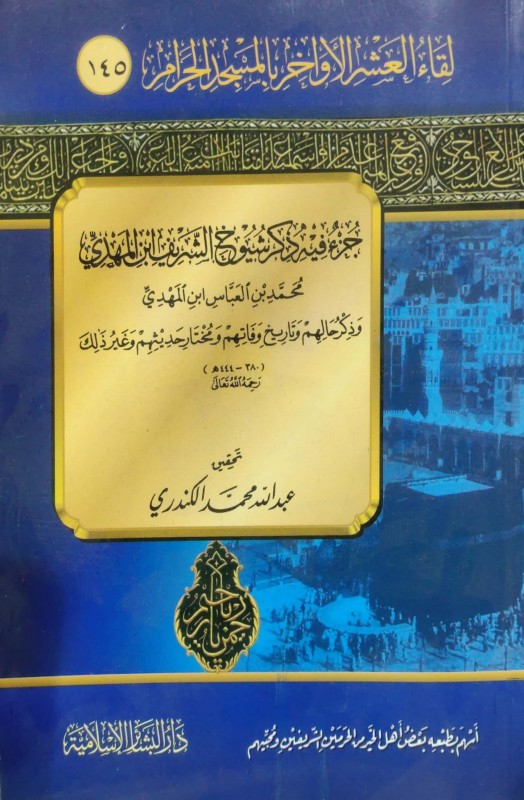 لِقَاءُ العَشْرِ الأَوَاخِرِ بِالمَسْجِدِ الحَرَامِ
١٤٥
جُزْءٌ فِيهِ ذِكْرُ شُيُوخِ الشَّرِيفِ ابْنِ المَهْدِيِّ
مُحَمَّدِ بْنِ العَبَّاسِ ابْنِ المَهْدِيِّ
وَذِكْرُ حَالِهِمْ وَتَارِيخُ وَفَاتِهِمْ وَمُخْتَارُ حَدِيثِهِمْ وَغَيْرُ ذَلِكَ
(٣٨٠ - ٤٤٤ هـ)
رَحِمَهُ اللَّهُ تَعَالَى
تَحْقِيق
عبد الله محمّد الكندري
أَسْهَمَ بِطَبْعِهِ بَعْضُ أَهْلِ الخَيْرِ مِنَ الحَرَمَيْنِ الشَّرِيفَيْنِ وَمُحِبِّيهِمْ
دَارُ البَشَائِرِ الإِسْلَامِيَّة